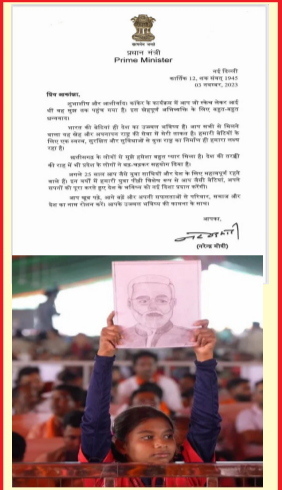 प्रधान मंत्री
Prime Minister
नई दिल्ली
कार्तिक 12, शक संवत् 1945
03 नवम्बर, 2023
प्रिय आकांक्षा,
शुभाशीष और आशीर्वाद! कांकेर के कार्यक्रम में आप जो स्केच लेकर आई
थीं वह मुझ तक पहुंच गया है। इस स्नेहपूर्ण अभिव्यक्ति के लिए बहुत-बहुत
धन्यवाद।
भारत की बेटियां ही देश का उज्ज्वल भविष्य हैं। आप सभी से मिलने
वाला यह स्नेह और अपनापन राष्ट्र की सेवा में मेरी ताकत है। हमारी बेटियों के
लिए एक स्वस्थ, सुरक्षित और सुविधाओं से युक्त राष्ट्र का निर्माण ही हमारा लक्ष्य
रहा है।
छत्तीसगढ़ के लोगों से मुझे हमेशा बहुत प्यार मिला है। देश की तरक्की
की राह में भी प्रदेश के लोगों ने बढ़-चढ़कर सहयोग दिया है।
अगले 25 साल आप जैसे युवा साथियों और देश के लिए महत्वपूर्ण रहने
वाले हैं। इन वर्षों में हमारी युवा पीढ़ी विशेष रूप से आप जैसी बेटियां, अपने
सपनों को पूरा करते हुए देश के भविष्य को नई दिशा प्रदान करेंगी।
आप खूब पढ़ें, आगे बढ़ें और अपनी सफलताओं से परिवार, समाज और
देश का नाम रोशन करें। आपके उज्ज्वल भविष्य की कामना के साथ।
आपका,
(नरेन्द्र मोदी)